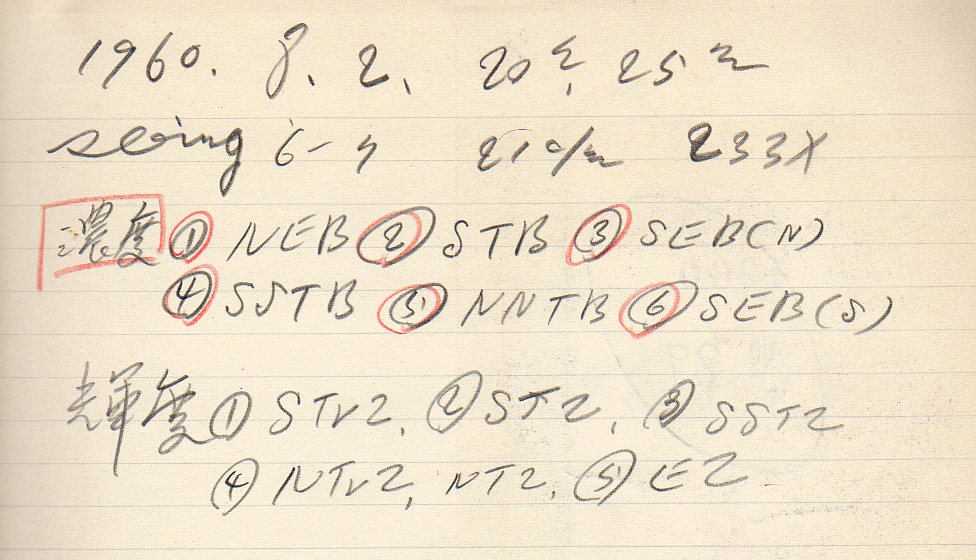 1960. 8. 2. 20h 25m
seeing 6-7 21c/m 233X
濃度 ① NEB ② STB ③ SEB(N)
④ SSTB ⑤ NNTB ⑥ SEB(S)
輝度 ① STrZ, ② STZ, ③ SSTZ
④ NTrZ, NTZ, ⑤ EZ